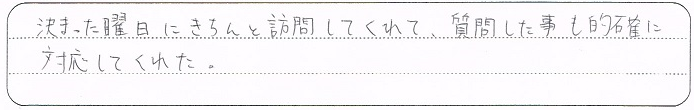 決まった曜日にきちんと訪問してくれて、質問した事も的確に
対応してくれた。